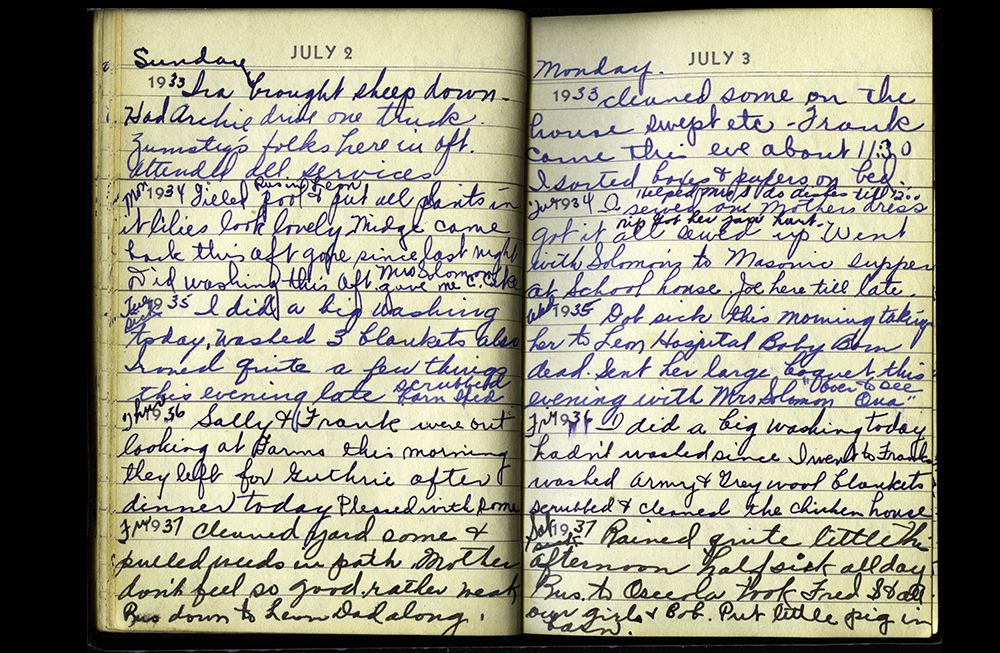 JULY 2
Sunday
1933 Ira brought sheep down -
Had Archie drive one truck.
Zumstegs folks here in aft.
attended all services
Mon 1934 Filled pool & put all plants in
Bus in Leon
it lilies look lovely. Midge came
back this aft gone since last night
Did washing this aft. Mrs Solomon
gave me C. Cake
Tue 1935 I did a big washing
today, washed 3 blankets also
Ironed quite a few things
this evening late scrubbed
barn shed
Thur 1936 Sally & Frank were out
looking at Farms this morning
they left for Guthrie after
dinner today Pleased with some
Fri 1937 Cleaned yard some &
pulled weeds in path. Mother
don't feel so good. rather weak
Bus down to Leon Dad along.
JULY 3
Monday.
1933 cleaned some on the
house swept etc - Frank
came this eve about 11:30
I sorted boxes & papers on bed.
Helped Mrs S do dishes till 12:00
Tue 1934 I sewed on Mothers dress
Nip got her jaw hurt.
got it all sewed up. Went
with Solomons to Masonic supper
at School house. Joe here till late.
Wed 1935 Dot sick this morning taking
her to Leon Hospital Baby Born
dead. Sent her large boquet this
evening with Mrs Solomon "over to see
Ona"
Fri 1936 I did a big washing today
hadn't washed since I went to Franks
washed Army & Grey wool blankets
scrubbed & cleaned the chicken house
Sat 1937 Rained quite little this
afternoon half sick all day
Bus. to Osceola took Fred S & all
our girls & Bob. Put little pig in
barn.